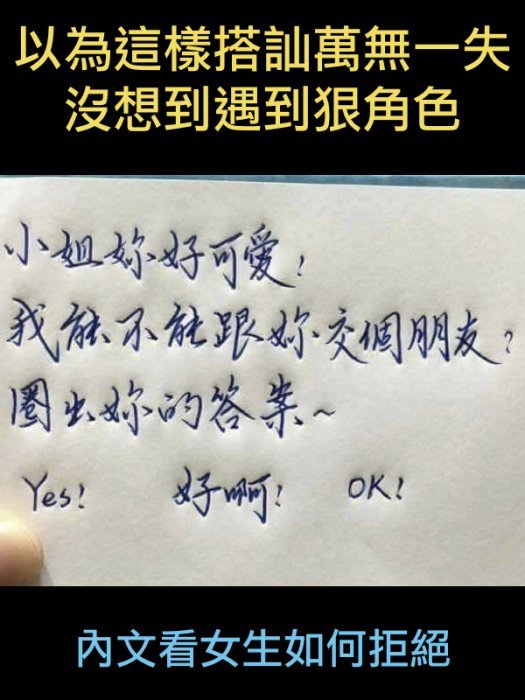 以為這樣搭訕萬無一失
沒想到遇到狠角色
小姐妳好可愛，
我能不能跟妳交個朋友？
圈出妳的答案~
Yes! 好啊! OK!
內文看女生如何拒絕